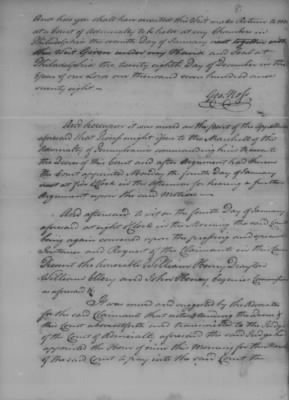 And how you shall have executed this Writ make Return to me
at a Court of Admiralty to be held at my Chamber in
Philadelphia the seventh Day of January next together with
this Writ Given under my Hand and Seal at
Philadelphia the twenty eighth Day of December in the
Year of our Lord one thousand seven hundred and
seventy eight —
Geo: Ross
And hereupon it was moved on the part of the Appellants
aforesaid that Process might Issue to the Marshall of the
Admiralty of Pennsylvania commanding him to execute
the Decree of this Court and after Argument had thereon
the Court appointed Monday the fourth Day of January
next at five OClock in the Afternoon for hearing a further
Argument upon the said Motion —
And afterward to wit on the fourth Day of January
aforesaid at eight OClock in the Morning the said Court
being again convened upon the pressing and special
Instance and Request of the Claimants in this Cause
Present the honorable William Henry Drayton
William Ellery and John Henry Esquires Commissioners
as aforesaid
It was moved and suggested by the Advocates
for the said Claimants that notwithstanding the Decree of
this Court abovecertified and transmitted to the Judge
of the Court of Admiralty aforesaid the said Judge had
appointed the Hour of nine this Morning for the Marshall
of the said Court to pay into the said Court the